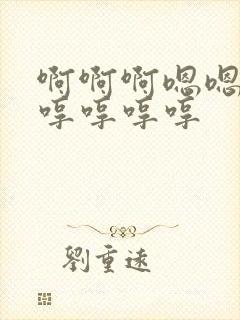 啊啊啊嗯嗯
哼哼哼哼
劉重遠